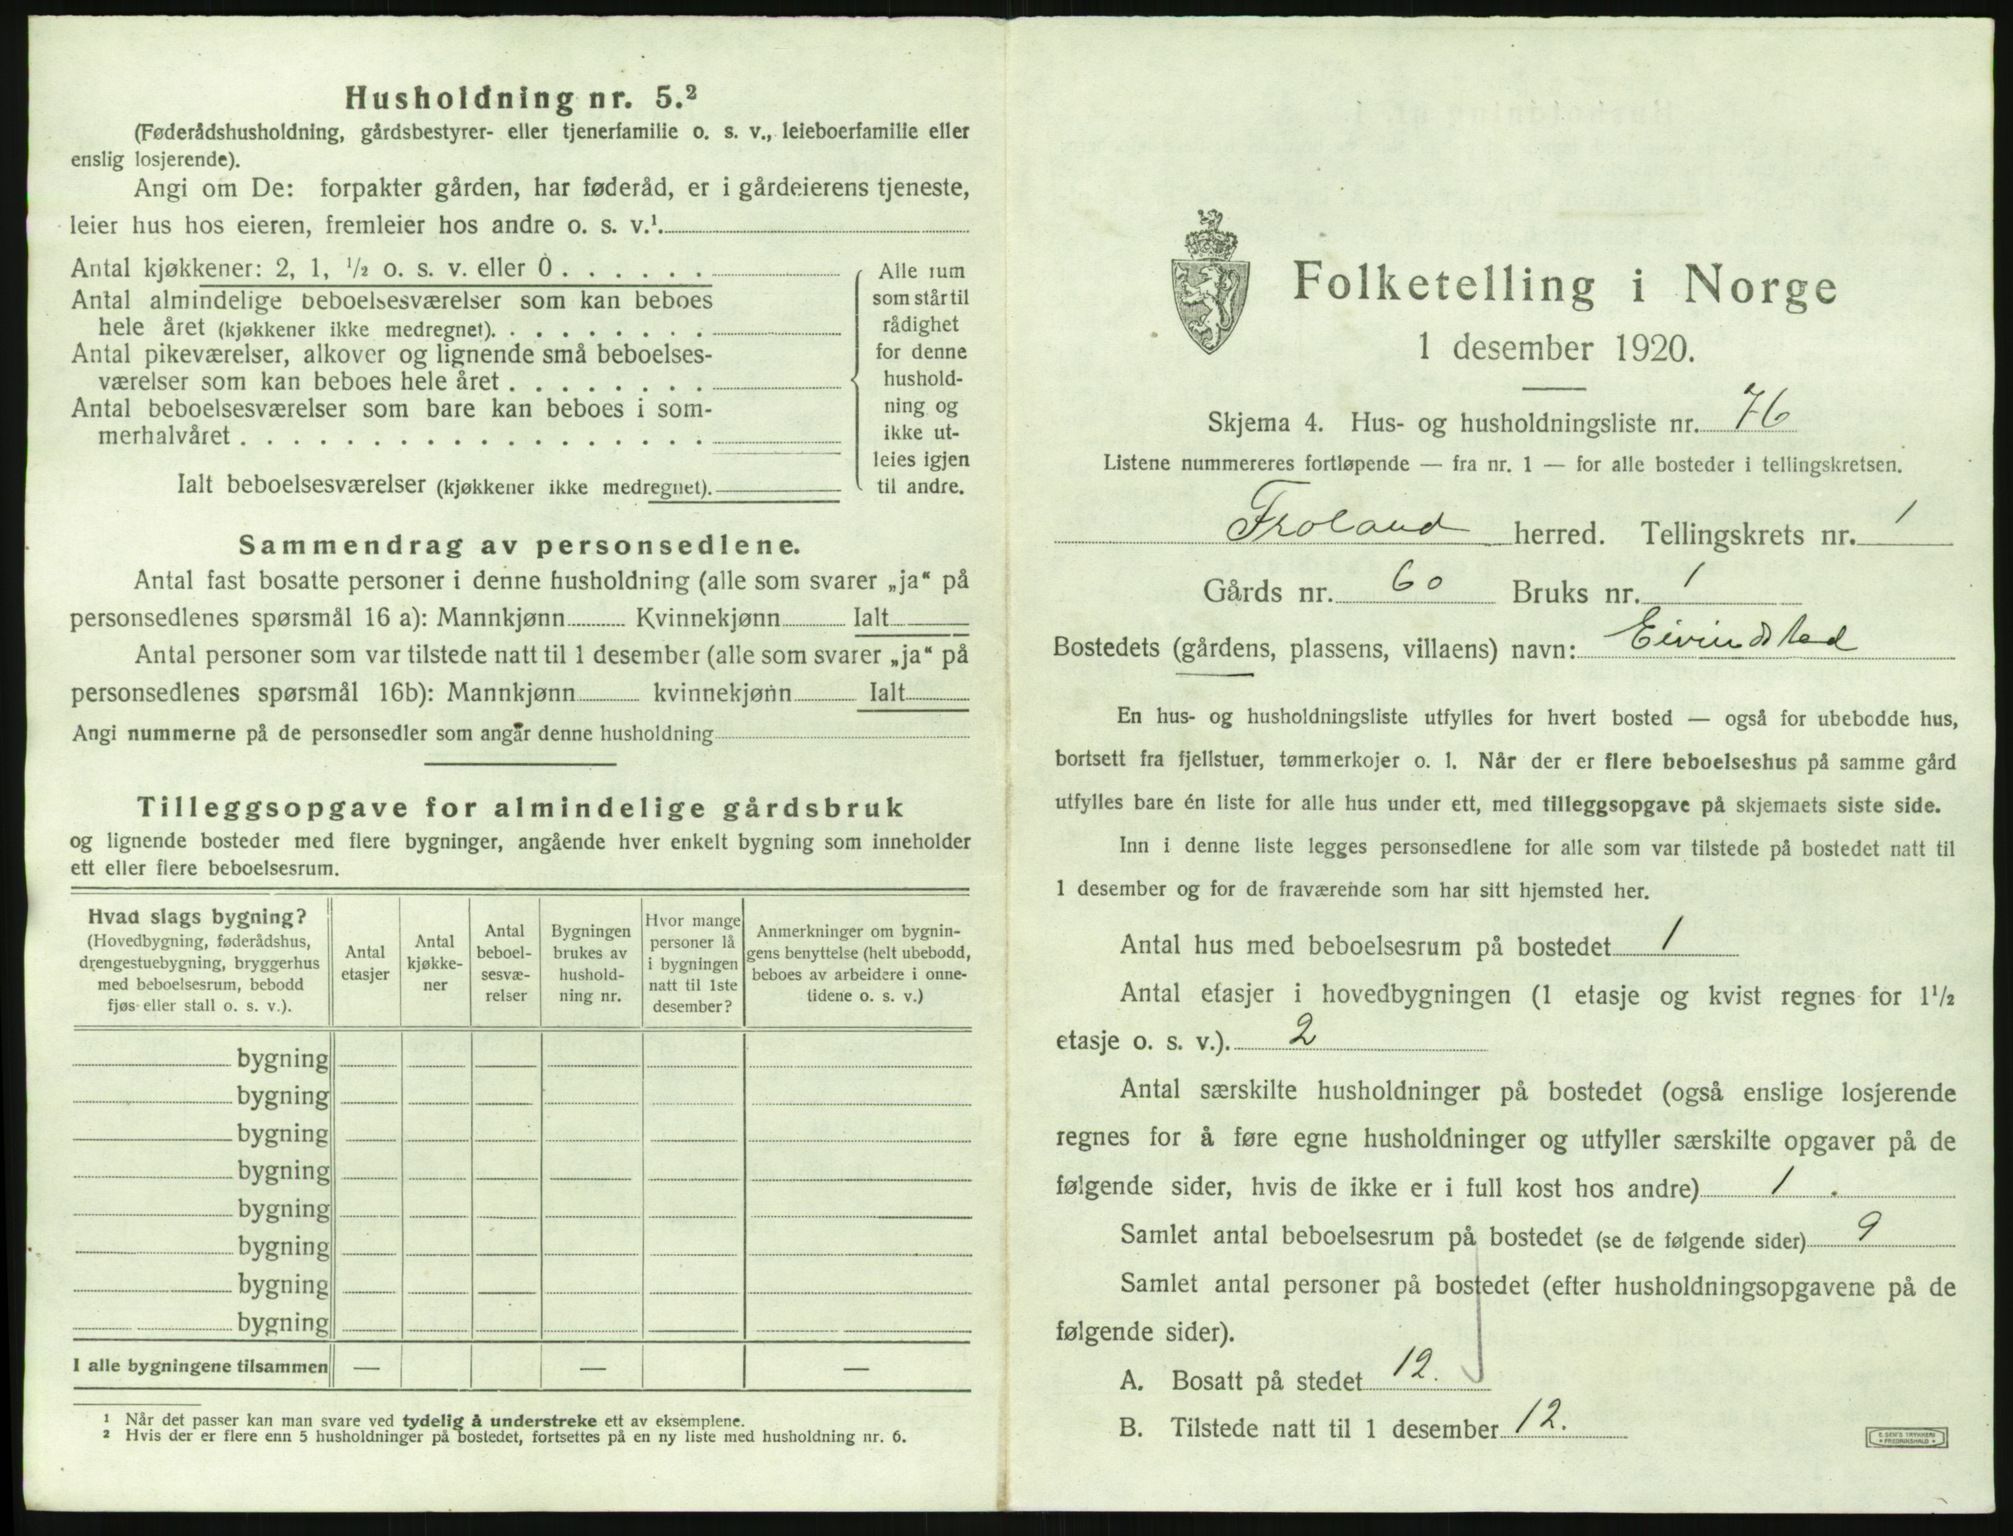 Husholdning nr. 5.²
(Føderådshusholdning, gårdsbestyrer- eller tjenerfamilie o. s. v., leieboerfamilie eller
enslig losjerende).
Angi om De: forpakter gården, har føderåd, er i gårdeierens tjeneste,
leier hus hos eieren, fremleier hos andre o. s. v.¹
Antal kjøkkener: 2, 1, ½ o. s. v. eller 0 . . . . . .
Antal almindelige beboelsesværelser som kan beboes
hele året (kjøkkener ikke medregnet). . . . . . . . .
Antal pikeværelser, alkover og lignende små beboelses-
værelser som kan beboes hele året . . . . . . . .
Antal beboelsesværelser som bare kan beboes i som-
merhalvåret . . . . . . . . . . . . . . . . . .
Ialt beboelsesværelser (kjøkkener ikke medregnet).
Alle rum
som står til
rådighet
for denne
hushold-
ning og
ikke ut-
leies igjen
til andre.
Sammendrag av personsedlene.
Antal fast bosatte personer i denne husholdning (alle som svarer „ja“ på
personsedlenes spørsmål 16 a): Mannkjønn Kvinnekjønn Ialt
Antal personer som var tilstede natt til 1 desember (alle som svarer „ja“ på
personsedlenes spørsmål 16b): Mannkjønn kvinnekjønn Ialt
Angi nummerne på de personsedler som angår denne husholdning
Tilleggsopgave for almindelige gårdsbruk
og lignende bosteder med flere bygninger, angående hver enkelt bygning som inneholder
ett eller flere beboelsesrum.
Hvad slags bygning?
(Hovedbygning, føderådshus,
drengestuebygning, bryggerhus
med beboelsesrum, bebodd
fjøs eller stall o. s. v.).
Antal
etasjer
Antal
kjøkke-
ner
Antal
beboel-
sesvæ-
relser
Bygningen
brukes av
hushold-
ning nr.
Hvor mange
personer lå
i bygningen
natt til 1ste
desember?
Anmerkninger om bygnin-
gens benyttelse (helt ubebodd,
beboes av arbeidere i onne-
tidene o. s. v.)
bygning
bygning
bygning
bygning
bygning
bygning
bygning
bygning
I alle bygningene tilsammen — — —
¹ Når det passer kan man svare ved tydelig å understreke ett av eksemplene.
² Hvis der er flere enn 5 husholdninger på bostedet, fortsettes på en ny liste med husholdning nr. 6.
Folketelling i Norge
1 desember 1920.
Skjema 4. Hus- og husholdningsliste nr. 76
Listene nummereres fortløpende — fra nr. 1 — for alle bosteder i tellingskretsen.
Froland herred. Tellingskrets nr. 1
Gårds nr. 60 Bruks nr. 1
Bostedets (gårdens, plassens, villaens) navn: Eivindstad
En hus- og husholdningsliste utfylles for hvert bosted — også for ubebodde hus,
bortsett fra fjellstuer, tømmerkojer o. l. Når der er flere beboelseshus på samme gård
utfylles bare én liste for alle hus under ett, med tilleggsopgave på skjemaets siste side.
Inn i denne liste legges personsedlene for alle som var tilstede på bostedet natt til
1 desember og for de fraværende som har sitt hjemsted her.
Antal hus med beboelsesrum på bostedet 1
Antal etasjer i hovedbygningen (1 etasje og kvist regnes for 1½
etasje o. s. v.). 2
Antal særskilte husholdninger på bostedet (også enslige losjerende
regnes for å føre egne husholdninger og utfyller særskilte opgaver på de
følgende sider, hvis de ikke er i full kost hos andre) 1 .
Samlet antal beboelsesrum på bostedet (se de følgende sider) 9
Samlet antal personer på bostedet (efter husholdningsopgavene på de
følgende sider).
A. Bosatt på stedet 12.
B. Tilstede natt til 1 desember 12.